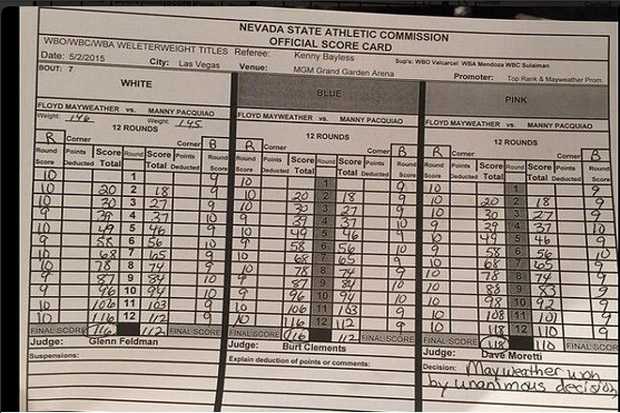 NEVADA STATE ATHLETIC COMMISSION
OFFICIAL SCORE CARD
WBO/WBC/WBA WELETERWEIGHT TITLES Referee: Kenny Bayless Sup's: WBO Valcarcel WBA Mendoza WBC Sulaiman
Date: 5/2/2015 City: Las Vegas Venue: MGM Grand Garden Arena Promoter: Top Rank & Mayweather Prom.
BOUT: 7
WHITE BLUE PINK
FLOYD MAYWEATHER vs. MANNY PACQUIAO FLOYD MAYWEATHER vs. MANNY PACQUIAO FLOYD MAYWEATHER vs. MANNY PACQUIAO
Weight: 146 Weight: 145
12 ROUNDS 12 ROUNDS 12 ROUNDS
R Corner Corner B R Corner Corner B R Corner Corner B
Round Score Points Deducted Score Total Round Score Total Points Deducted Round Score Round Score Points Deducted Score Total Round Score Total Points Deducted Round Score Round Score Points Deducted Score Total Round Score Total Points Deducted Round Score
10 1 9 10 1 9 10 1 9
10 20 2 18 9 10 20 2 18 9 10 20 2 18 9
10 30 3 27 9 10 30 3 27 9 10 30 3 27 9
9 39 4 37 10 9 39 4 37 10 9 39 4 37 10
10 49 5 46 9 10 49 5 46 9 10 49 5 46 9
9 58 6 56 10 9 58 6 56 10 9 58 6 56 10
10 68 7 65 9 10 68 7 65 9 10 68 7 65 9
10 78 8 74 9 10 78 8 74 9 10 78 8 74 9
9 87 9 84 10 9 87 9 84 10 10 88 9 83 9
9 96 10 94 10 9 96 10 94 10 10 98 10 92 9
10 106 11 103 9 10 106 11 103 9 10 108 11 101 9
10 116 12 112 9 10 116 12 112 9 10 118 12 110 9
FINAL SCORE 116 112 FINAL SCORE FINAL SCORE 116 112 FINAL SCORE FINAL SCORE 118 110 FINAL SCORE
Judge: Glenn Feldman Judge: Burt Clements Judge: Dave Moretti
Suspensions: Explain deduction of points or comments: Decision: Mayweather won
by unanimous decision